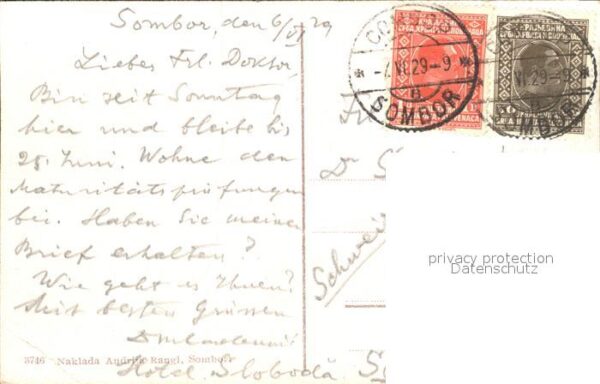 Sombor, den 6/VI 29
Liebes Frl. Doktor,
Bin seit Sonntag
hier und bleibe bis
25. Juni. Wohne den
Maturitätsprüfungen
bei. Haben Sie meinen
Brief erhalten?
Wie geht es Ihnen?
Mit besten Grüssen
Hotel Sloboda
3746 Naklada Andrije Rangl, Sombor
СОМБОР
-7.VI.29-9
B
SOMBOR
VI.29-9
MBOR
Dr
Schweiz
privacy protection
Datenschutz